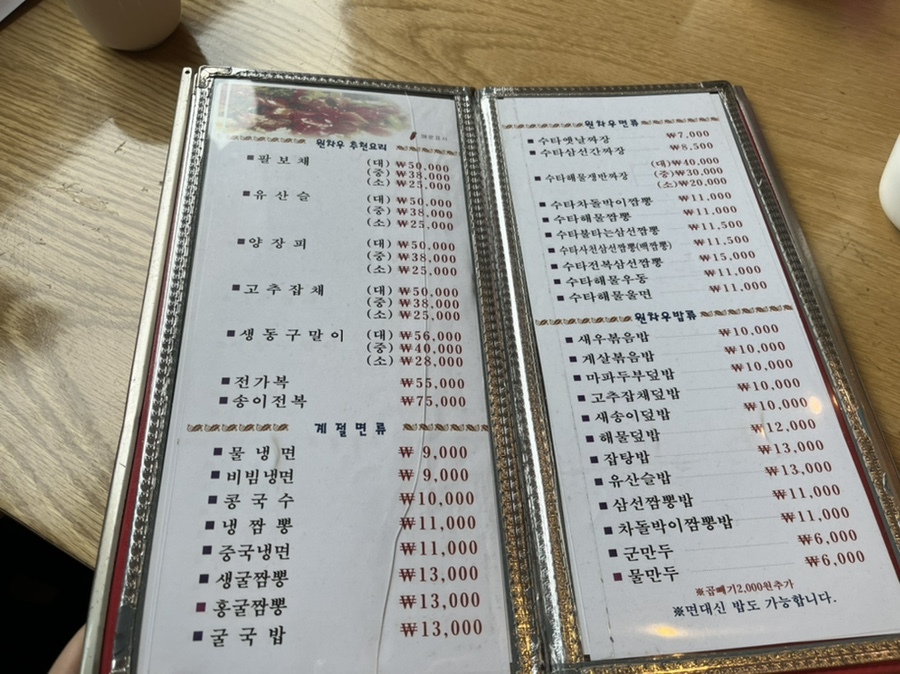 원차우 추천요리
팔보채 (대) ₩50,000
(중) ₩38,000
(소) ₩25,000
유산슬 (대) ₩50,000
(중) ₩38,000
(소) ₩25,000
양장피 (대) ₩50,000
(중) ₩38,000
(소) ₩25,000
고추잡채 (대) ₩50,000
(중) ₩38,000
(소) ₩25,000
생동구말이 (대) ₩56,000
(중) ₩40,000
(소) ₩28,000
전가복 ₩55,000
송이전복 ₩75,000
계절면류
물냉면 ₩ 9,000
비빔냉면 ₩ 9,000
콩국수 ₩10,000
냉짬뽕 ₩11,000
중국냉면 ₩11,000
생굴짬뽕 ₩13,000
홍굴짬뽕 ₩13,000
굴국밥 ₩13,000
원차우면류
수타옛날짜장 ₩7,000
수타삼선간짜장 ₩8,500
(대)₩40,000
수타해물쟁반짜장 (중)₩30,000
(소)₩20,000
수타차돌박이짬뽕 ₩11,000
수타해물짬뽕 ₩11,000
수타불타는삼선짬뽕 ₩11,500
수타사천삼선짬뽕(백짬뽕) ₩11,500
수타전복삼선짬뽕 ₩15,000
수타해물우동 ₩11,000
수타해물울면 ₩11,000
원차우밥류
새우볶음밥 ₩10,000
게살볶음밥 ₩10,000
마파두부덮밥 ₩10,000
고추잡채덮밥 ₩10,000
새송이덮밥 ₩10,000
해물덮밥 ₩12,000
잡탕밥 ₩13,000
유산슬밥 ₩13,000
삼선짬뽕밥 ₩11,000
차돌박이짬뽕밥 ₩11,000
군만두 ₩6,000
물만두 ₩6,000
※곱빼기2,000원추가
※면대신 밥도 가능합니다.